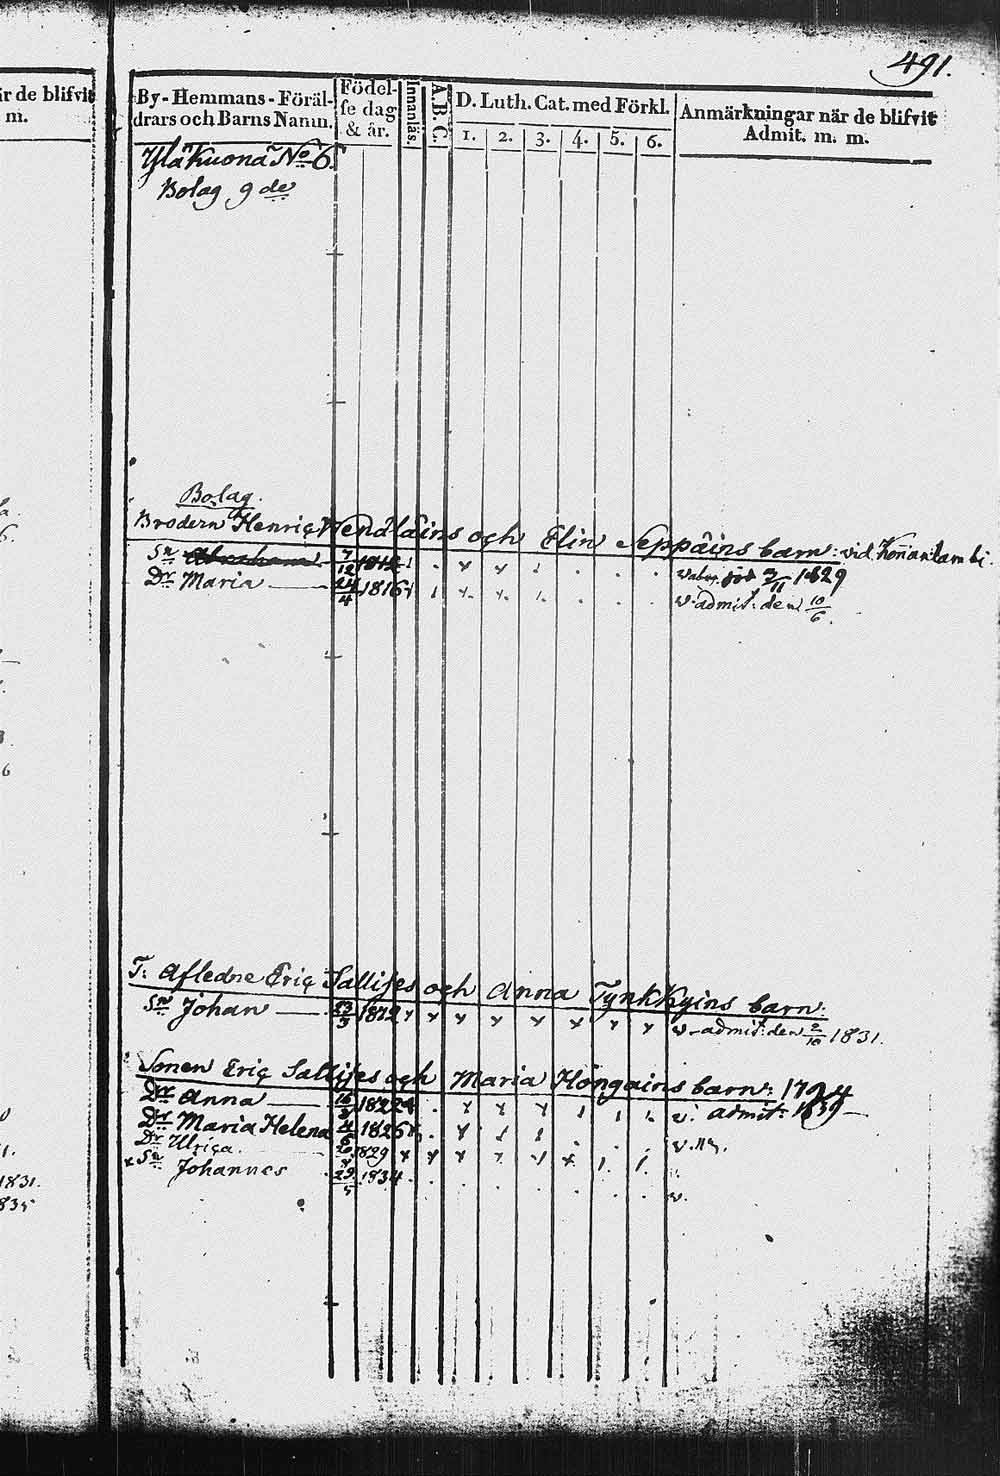 491.
är de blifvit
m.
By-Hemmans-Föräl-
drars och Barns Namn.
Födel-
se dag
& år.
Innanläs.
A.B.C.
D. Luth. Cat. med Förkl.
1. 2. 3. 4. 5. 6.
Anmärkningar när de blifvit
Admit. m. m.
Ylä Kuona No 6.
Bolag 9 de
Bolag.
Brodern Henric Wendläins och Elin Seppäins barn: vid Konanlambi.
Sn Abraham 7/12 1812 död 1829
Dr Maria 24/4 1816 v. admit: den 10/6.
T: Afledne Eric Sallises och Anna Tynkkyins barn:
Sn Johan 1812 v. admit: den 2/10 1831.
Sonen Eric Sallises och Maria Höngains barn: 1794
Dr Anna 1822 v. admit: 1839
Dr Maria Helena 1825 v.
Dr Ulrica 1829
Sn Johannes 29/5 1834 v.
1831.
1835